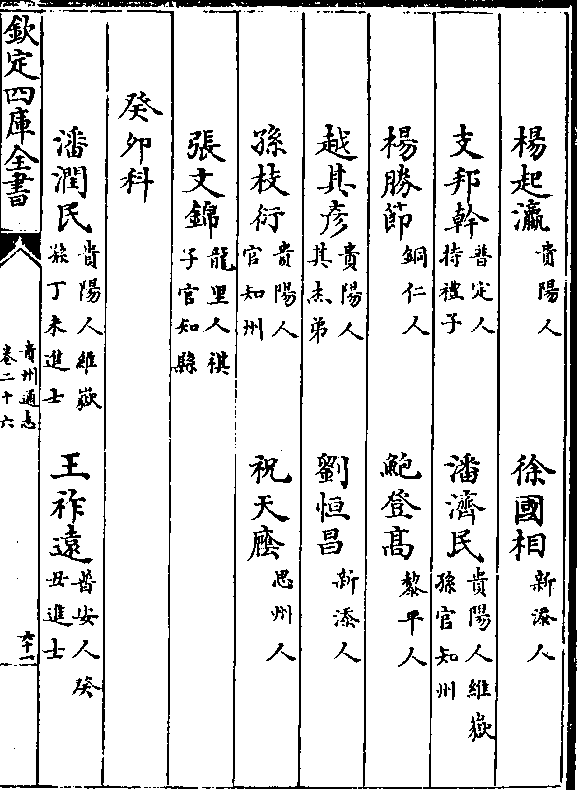 楊起瀛 貴陽人 徐國相 新添人
支邦幹 普定人持禮子 潘濟民 貴陽人維嶽孫官知州
楊勝節 銅仁人 鮑登高 黎平人
越其彥 貴陽人其杰弟 劉恒昌 新添人
孫枝衍 貴陽人官知州 祝天廕 思州人
張文錦 龍里人祺子官知縣
癸卯科
潘潤民 貴陽人維嶽孫丁未進士 王祚遠 普安人癸丑進士
欽定四庫全書 貴州通志卷二十六 六十一